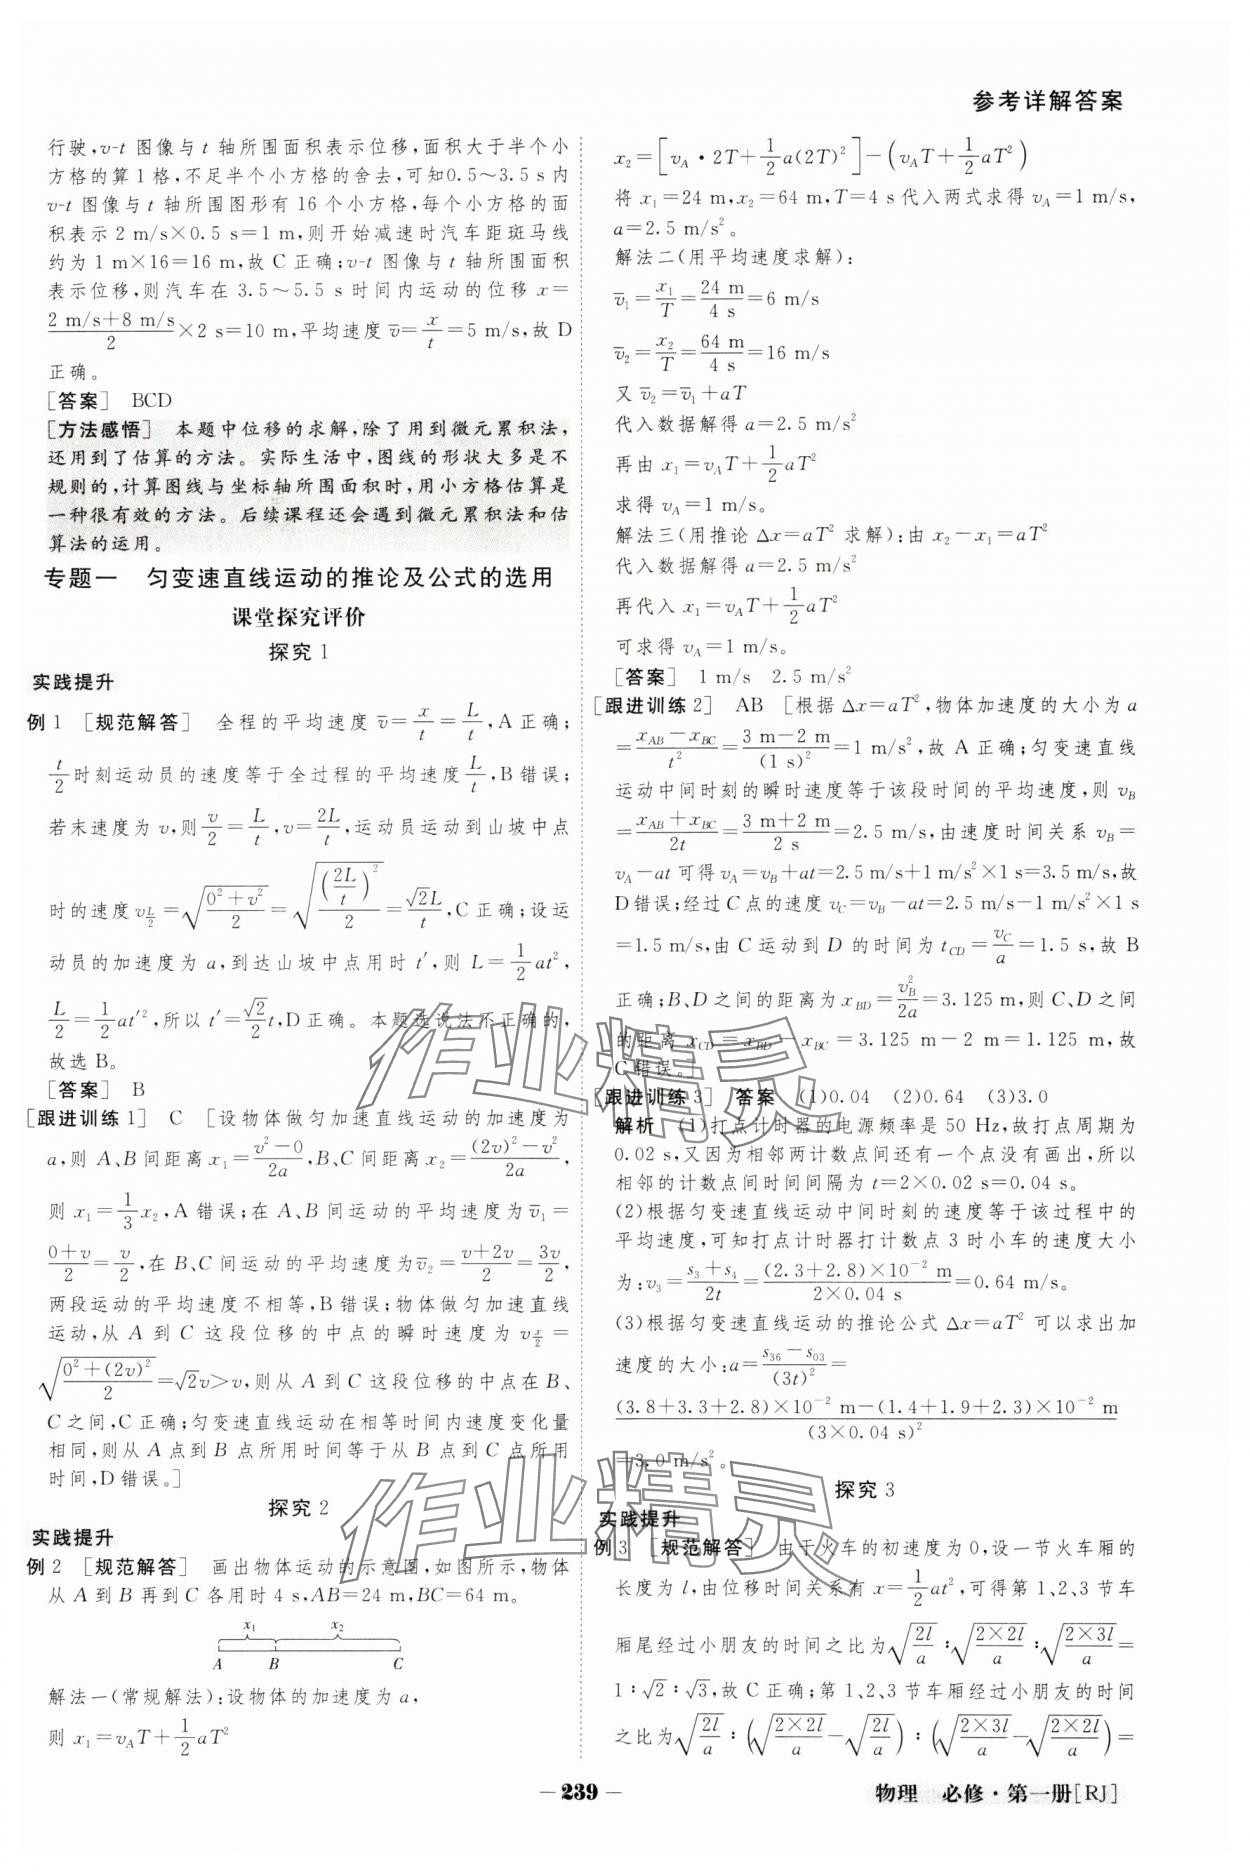 参考详解答案
行驶,v-t 图像与 t 轴所围面积表示位移,面积大于半个小
方格的算1格,不足半个小方格的舍去,可知0.5～3.5 s内
v-t 图像与 t 轴所围图形有 16 个小方格,每个小方格的面
积表示 2 m/s×0.5 s=1 m,则开始减速时汽车距斑马线
约为 1 m×16=16 m,故 C 正确;v-t 图像与 t 轴所围面积
表示位移,则汽车在 3.5～5.5 s 时间内运动的位移 x=
(2 m/s+8 m/s)/2×2 s=10 m,平均速度 v̄=x/t=5 m/s,故 D
正确。
[答案] BCD
[方法感悟] 本题中位移的求解,除了用到微元累积法,
还用到了估算的方法。实际生活中,图线的形状大多是不
规则的,计算图线与坐标轴所围面积时,用小方格估算是
一种很有效的方法。后续课程还会遇到微元累积法和估
算法的运用。
专题一 匀变速直线运动的推论及公式的选用
课堂探究评价
探究 1
实践提升
例 1 [规范解答] 全程的平均速度 v̄=x/t=L/t,A 正确;
t/2时刻运动员的速度等于全过程的平均速度L/t,B错误;
若末速度为 v,则v/2=L/t,v=2L/t,运动员运动到山坡中点
时的速度v_(L/2)=√((0²+v²)/2)=√((2L/t)²/2)=√2L/t,C正确;设运
动员的加速度为 a,到达山坡中点用时 t′,则 L=1/2at²,
L/2=1/2at′²,所以 t′=√2/2t,D正确。本题选说法不正确的,
故选B。
[答案] B
[跟进训练1] C [设物体做匀加速直线运动的加速度为
a,则 A、B 间距离 x₁=(v²−0)/2a,B、C 间距离 x₂=((2v)²−v²)/2a,
则 x₁=1/3x₂,A 错误;在 A、B 间运动的平均速度为v̄₁=
(0+v)/2=v/2,在 B、C 间运动的平均速度v̄₂=(v+2v)/2=3v/2,
两段运动的平均速度不相等,B错误;物体做匀加速直线
运动,从 A 到 C 这段位移的中点的瞬时速度为 v_(x/2)=
√((0²+(2v)²)/2)=√2v>v,则从 A 到 C 这段位移的中点在 B、
C之间,C正确;匀变速直线运动在相等时间内速度变化量
相同,则从 A 点到 B 点所用时间等于从 B 点到 C 点所用
时间,D错误。]
探究 2
实践提升
例 2 [规范解答] 画出物体运动的示意图,如图所示,物体
从 A 到 B 再到 C 各用时 4 s,AB=24 m,BC=64 m。
x₁ x₂
A B C
解法一(常规解法):设物体的加速度为 a,
则 x₁=v_A T+1/2aT²
x₂=[v_A·2T+1/2a(2T)²]−(v_A T+1/2aT²)
将 x₁=24 m,x₂=64 m,T=4 s代入两式求得 v_A=1 m/s,
a=2.5 m/s²。
解法二(用平均速度求解):
v̄₁=x₁/T=24 m/4 s=6 m/s
v̄₂=x₂/T=64 m/4 s=16 m/s
又 v̄₂=v̄₁+aT
代入数据解得 a=2.5 m/s²
再由 x₁=v_A T+1/2aT²
求得 v_A=1 m/s。
解法三(用推论 Δx=aT² 求解):由 x₂−x₁=aT²
代入数据解得 a=2.5 m/s²
再代入 x₁=v_A T+1/2aT²
可求得 v_A=1 m/s。
[答案] 1 m/s 2.5 m/s²
[跟进训练2] AB [根据 Δx=aT²,物体加速度的大小为 a
=(x_AB−x_BC)/t²=(3 m−2 m)/(1 s)²=1 m/s²,故 A 正确;匀变速直线
运动中间时刻的瞬时速度等于该段时间的平均速度,则 v_B
=(x_AB+x_BC)/2t=(3 m+2 m)/2 s=2.5 m/s,由速度时间关系 v_B=
v_A−at 可得 v_A=v_B+at=2.5 m/s+1 m/s²×1 s=3.5 m/s,故
D错误;经过 C 点的速度 v_C=v_B−at=2.5 m/s−1 m/s²×1 s
=1.5 m/s,由 C 运动到 D 的时间为 t_CD=v_C/a=1.5 s,故 B
正确;B、D 之间的距离为 x_BD=v_B²/2a=3.125 m,则 C、D 之间
的距离 x_CD=x_BD−x_BC=3.125 m−2 m=1.125 m,故
C错误。]
[跟进训练3] 答案 (1)0.04 (2)0.64 (3)3.0
解析 (1)打点计时器的电源频率是 50 Hz,故打点周期为
0.02 s,又因为相邻两计数点间还有一个点没有画出,所以
相邻的计数点间时间间隔为 t=2×0.02 s=0.04 s。
(2)根据匀变速直线运动中间时刻的速度等于该过程中的
平均速度,可知打点计时器打计数点 3 时小车的速度大小
为:v₃=(s₃+s₄)/2t=((2.3+2.8)×10⁻² m)/(2×0.04 s)=0.64 m/s。
(3)根据匀变速直线运动的推论公式 Δx=aT² 可以求出加
速度的大小:a=(s₃₆−s₀₃)/(3t)²=
((3.8+3.3+2.8)×10⁻² m−(1.4+1.9+2.3)×10⁻² m)/(3×0.04 s)²
=3.0 m/s²。
探究 3
实践提升
例 3 [规范解答] 由于火车的初速度为 0,设一节火车厢的
长度为 l,由位移时间关系有 x=1/2at²,可得第 1、2、3 节车
厢尾经过小朋友的时间之比为√(2l/a)∶√(2×2l/a)∶√(2×3l/a)=
1∶√2∶√3,故C正确;第 1、2、3节车厢经过小朋友的时间
之比为√(2l/a)∶(√(2×2l/a)−√(2l/a))∶(√(2×3l/a)−√(2×2l/a))=
作业精灵
作业精灵
— 239 —
物理 必修·第一册[RJ]